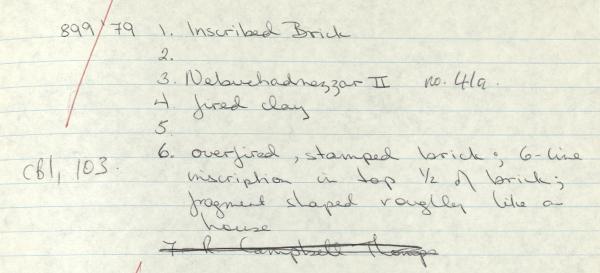 899/79 1. Inscribed Brick
2.
3. Nebuchadnezzar II no. 41a.
4. fired clay
5.
CBI, 103. 6. overfired, stamped brick; 6-line
inscription in top 1/2 of brick;
fragment shaped roughly like a
house
7. R Campbell Thomps